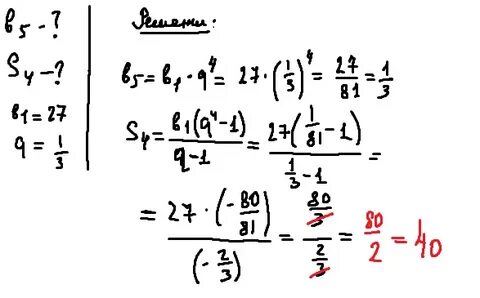 b₅ - ?
S₄ - ?
b₁ = 27
q = 1/3
Решение:
b₅ = b₁ · q⁴ = 27 · (1/3)⁴ = 27/81 = 1/3
S₄ = b₁(q⁴ - 1)/(q - 1) = 27(1/81 - 1)/(1/3 - 1) =
= 27 · (-80/81)/(-2/3) = (80/3)/(2/3) = 80/2 = 40